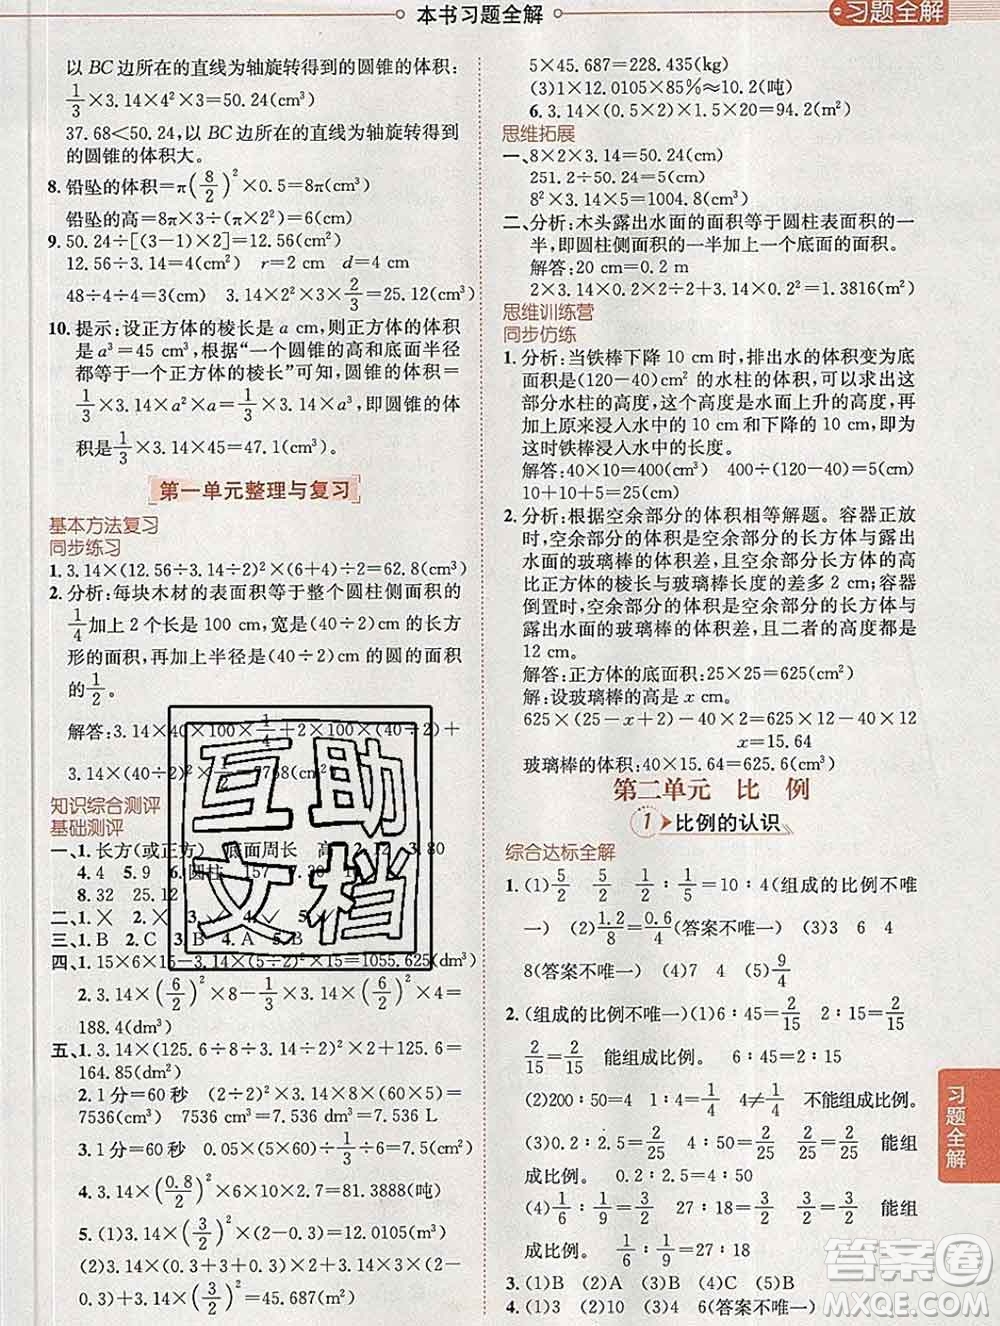 本书习题全解
习题全解
以 BC 边所在的直线为轴旋转得到的圆锥的体积:
1/3×3.14×4²×3=50.24(cm³)
37.68<50.24,以 BC 边所在的直线为轴旋转得到
的圆锥的体积大。
8. 铅坠的体积=π(8/2)²×0.5=8π(cm³)
铅坠的高=8π×3÷(π×2²)=6(cm)
9. 50.24÷[(3-1)×2]=12.56(cm)
12.56÷3.14=4(cm) r=2 cm d=4 cm
48÷4÷4=3(cm) 3.14×2²×3×2/3=25.12(cm³)
10. 提示:设正方体的棱长是 a cm,则正方体的体积
是 a³=45 cm³,根据“一个圆锥的高和底面半径
都等于一个正方体的棱长”可知,圆锥的体积=
1/3×3.14×a²×a=1/3×3.14×a³,即圆锥的体
积是1/3×3.14×45=47.1(cm³)。
第一单元整理与复习
基本方法复习
同步练习
1. 3.14×(12.56÷3.14÷2)²×(6+4)÷2=62.8(cm³)
2. 分析:每块木材的表面积等于整个圆柱侧面积的
1/4加上 2 个长是 100 cm,宽是(40÷2)cm 的长方
形的面积,再加上半径是(40÷2)cm 的圆的面积
的1/2。
解答:3.14×40×100×1/4+2×100×(40÷2)+
3.14×(40÷2)²×
知识综合测评
基础测评
一、1. 长方(或正方) 底面周长 高
4. 4 5. 9 6. 圆柱 157
8. 32 25.12
二、1. × 2. × 3.
三、1. B 2. C 3. B 4. A 5. B
四、1. 15×6×15-3.14×(5÷2)²×15=1055.625(dm³)
2. 3.14×(6/2)²×8-1/3×3.14×(6/2)²×4=
188.4(dm³)
五、1. 3.14×(125.6÷8÷3.14÷2)²×2+125.6=
164.85(dm²)
2. 1 分=60 秒 (2÷2)²×3.14×8×(60×5)=
7536(cm³) 7536 cm³=7.536 dm³=7.536 L
3. 1 分=60 秒 0.05×(5×60÷5)÷1/3÷6=7.5(m)
4. 3.14×(0.8/2)²×6×2700×10=81.3888(吨)
5. (1)3.14×(3/2)²×(2-0.3)=12.0105(m³)
(2)3.14×(3/2)²+3.14×3×(2+0.3)=
28.731(m²)
5×45.687=228.435(kg)
(3)1×12.0105×85%≈10.2(吨)
6. 3.14×(0.5×2)×1.5×20=94.2(m²)
思维拓展
一、8×2×3.14=50.24(cm)
251.2÷50.24=5(cm)
8²×3.14×5=1004.8(cm³)
二、分析:木头露出水面的面积等于圆柱表面积的一
半,即圆柱侧面积的一半加上一个底面的面积。
解答:20 cm=0.2 m
2×3.14×0.2×2÷2+3.14×0.2²=1.3816(m²)
思维训练营
同步仿练
1. 分析:当铁棒下降 10 cm 时,排出水的体积变为底
面积是(120-40)cm² 的水柱的体积,可以求出这
部分水柱的高度,这个高度是水面上升的高度,再
加上原来浸入水中的 10 cm 和下降的 10 cm,即为
这时铁棒浸入水中的长度。
解答:40×10=400(cm³) 400÷(120-40)=5(cm)
10+10+5=25(cm)
2. 分析:根据空余部分的体积相等解题。容器正放
时,空余部分的体积是空余部分长方体与露出
水面的玻璃棒的体积差,且空余部分长方体的高
比正方体的棱长与玻璃棒长的差多 2 cm;容器
倒置时,空余部分的体积是空余部分的长方体与
露出水面的玻璃棒的体积差,且二者的高度为
12 cm。
解答:正方体的底面积:25×25=625(cm²)
解:设玻璃棒的高是 x cm。
625×(25-x+2)-40×2=625×12-40×12
x=15.64
玻璃棒的体积:40×15.64=625.6(cm³)
第二单元 比 例
1 比例的认识
综合达标全解
1. (1)5/2 5/2 1/2:1/5=10:4(组成的比例不唯
一) (2)1.2/8=0.6/4(答案不唯一) (3)3 6 4
8(答案不唯一) (4)7 4 (5)9/4
2. (组成的比例不唯一)(1)6:45=2/15 2:15=
2/15 2/15=2/15 能组成比例。 6:45=2:15
(2)200:50=4 1:4=1/4 4≠1/4 不能组成比例。
(3)0.2:2.5=2/25 4:50=2/25 2/25=2/25 能组
成比例。 0.2:2.5=4:50
(4)1/6:1/9=3/2 27:18=3/2 3/2=3/2 能组
成比例。 1/6:1/9=27:18
3. (1)B (2)A (3)C (4)C (5)B
4. (1)3 (2)10 (3)4 6(答案不唯一)
习题全解
互助
文档
答案圈
MXQE.COM